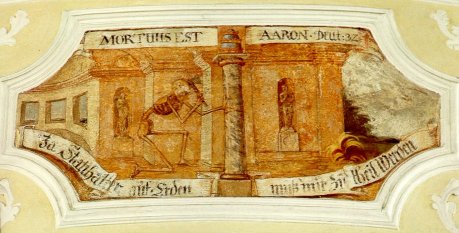 MORTUUS EST
AARON · Deut: 32
Za Statthalter auf Erden
muß mir Zu theil Werden